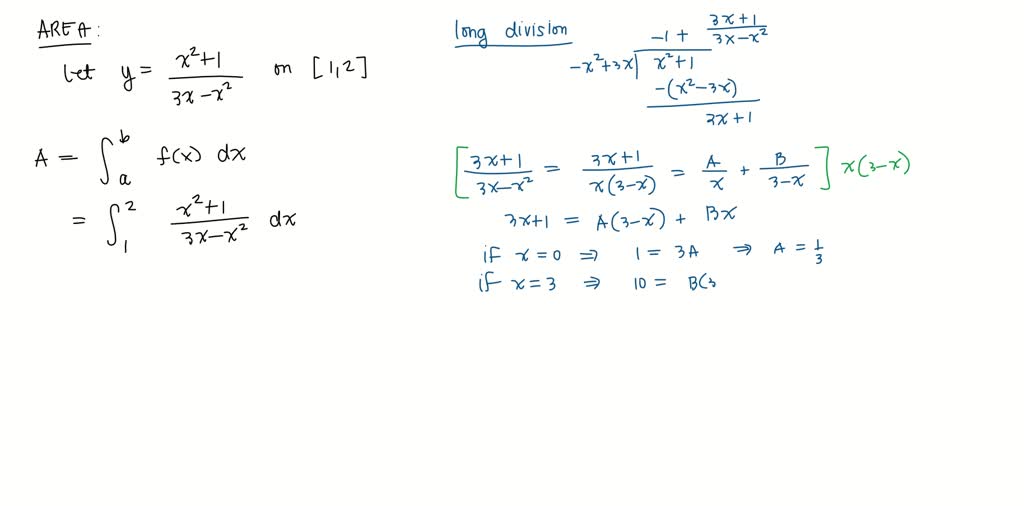 AREA:
Let y = x²+1 / 3x-x² on [1,2]
A = ∫ₐᵇ f(x) dx
= ∫₁² x²+1 / 3x-x² dx
long division
-1 + 3x+1 / 3x-x²
-x²+3x | x²+1
-(x²-3x)
3x+1
[ 3x+1 / 3x-x² = 3x+1 / x(3-x) = A/x + B/3-x ] x(3-x)
3x+1 = A(3-x) + Bx
if x=0 ⇒ 1 = 3A ⇒ A = 1/3
if x=3 ⇒ 10 = B(3